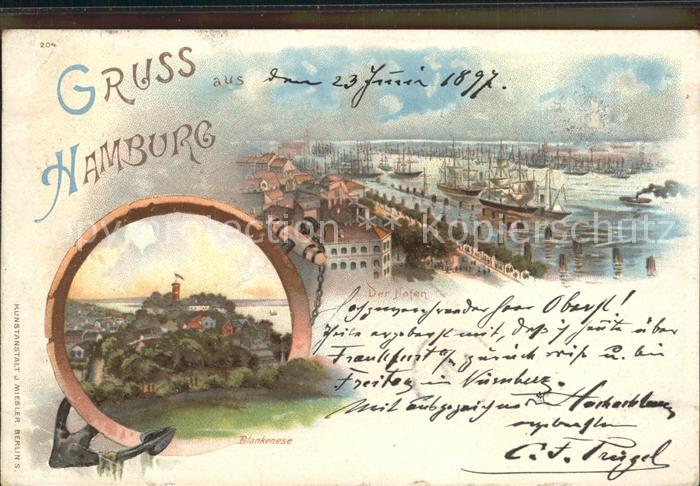 204
GRUSS aus den 23 Juni 1897.
HAMBURG
Copyright-protection © Kopierschutz
Der Hafen
Herr Oberst!
Theile ergebenst mit, daß ich heute über
Frankfurt a/M zurück reise u. bin
Freitag in Nürnberg.
Mit
ergebenster
Blankenese
KUNSTANSTALT J. MIESLER, BERLIN S.